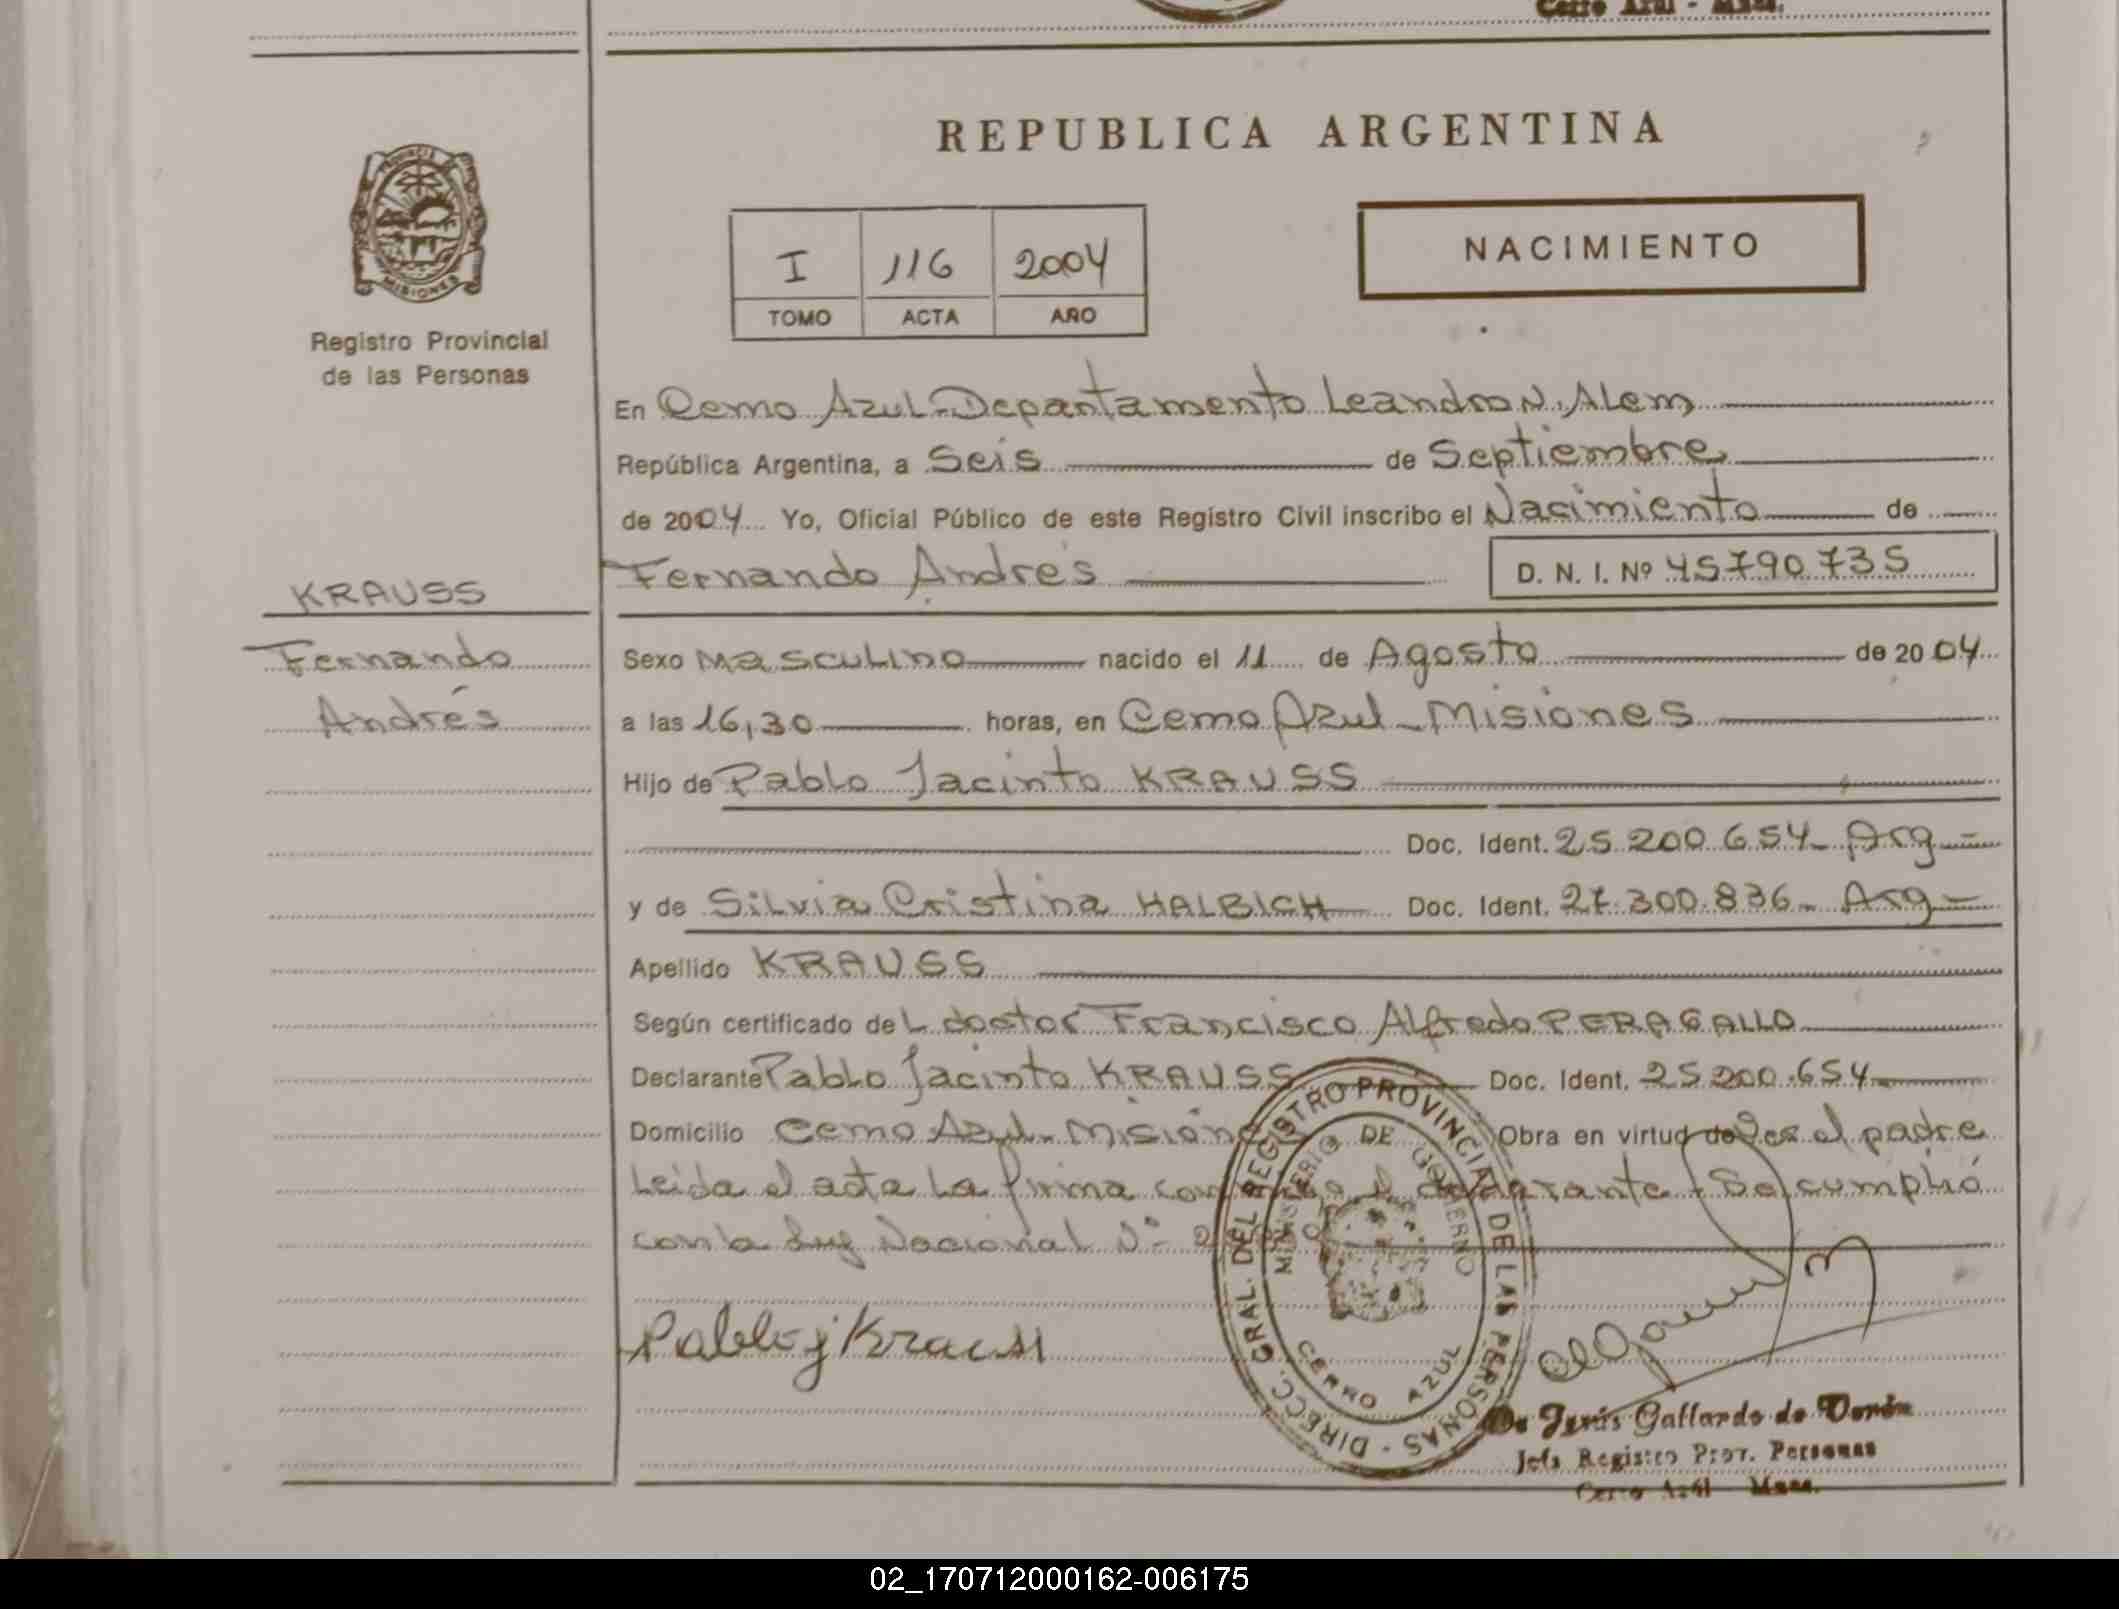 Cerro Azul - Mnes.
REPUBLICA ARGENTINA
PROVINCIA DE
MISIONES
NACIMIENTO
I 116 2004
TOMO ACTA AÑO
Registro Provincial
de las Personas
En Cerro Azul-Departamento Leandro N. Alem
República Argentina, a Seis de Septiembre
de 2004 Yo, Oficial Público de este Registro Civil inscribo el Nacimiento de
Fernando Andrés D. N. I. Nº 45790735
KRAUSS
Fernando
Andrés
Sexo Masculino nacido el 11 de Agosto de 2004
a las 16,30 horas, en Cerro Azul-Misiones
Hijo de Pablo Jacinto KRAUSS
Doc. Ident. 25.200.654- Arg-
y de Silvia Cristina HALBICH Doc. Ident. 27.300.836- Arg-
Apellido KRAUSS
Según certificado del doctor Francisco Alfredo PERAGALLO
Declarante Pablo Jacinto KRAUSS Doc. Ident. 25.200.654
Domicilio Cerro Azul-Misiones Obra en virtud de ser el padre
Leida el acta la firma conmigo el declarante. Se cumplió
con la Ley Nacional Nº
Pablo j Krauss
DIRECC. GRAL. DEL REGISTRO PROVINCIAL DE LAS PERSONAS -
MINISTERIO DE GOBIERNO
CERRO AZUL
De Jesús Gallardo de Verón
Jefa Registro Prov. Personas
Cerro Azul Mnes.
02_170712000162-006175